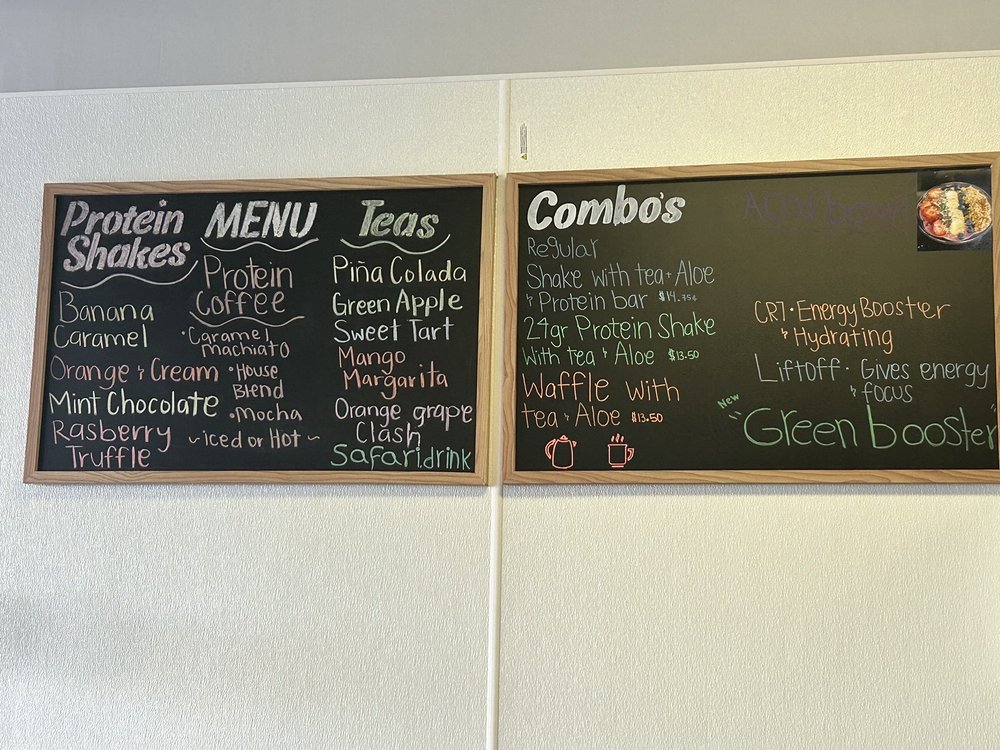 Protein
Shakes
Banana
Caramel
Orange & Cream
Mint Chocolate
Rasberry
Truffle
MENU
Protein
Coffee
• Caramel
machiato
• House
Blend
• Mocha
~ iced or Hot ~
Teas
Piña Colada
Green Apple
Sweet Tart
Mango
Margarita
Orange grape
Clash
Safari drink
Combo's
Regular
Shake with tea + Aloe
& Protein bar $14.75¢
24gr Protein Shake
with tea & Aloe $13.50
Waffle with
tea & Aloe $13.50
CR7 • Energy Booster
& Hydrating
Liftoff • Gives energy
& focus
New
Green booster